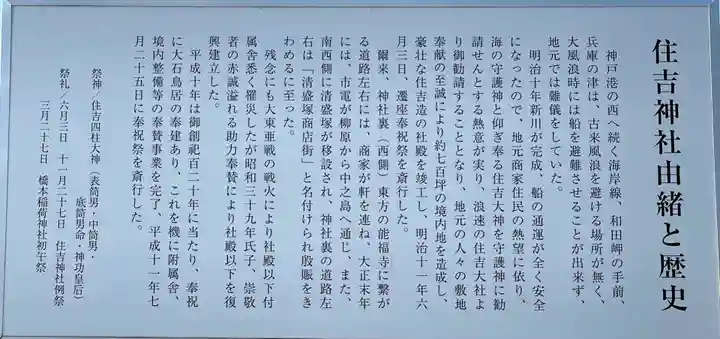 住吉神社由緒と歴史
神戸港の西へ続く海岸線、和田岬の手前、
兵庫の津は、古来風浪を避ける場所が無く、
大風浪時には船を避難させることが出来ず、
地元では難儀をしていた。
明治十年新川が完成、船の通運が全く安全
になったので、地元商家住民の熱望に依り、
海の守護神と仰ぎ奉る住吉大神を守護神に勧
請せんとする熱意が実り、浪速の住吉大社よ
り御勧請することとなり、地元の人々の敷地
奉献の至誠により約七百坪の境内地を造成し、
豪壮な住吉造の社殿を竣工し、明治十一年六
月三日、遷座奉祝祭を斎行した。
爾来、神社裏（西側）東方の能福寺に繋が
る道路左右には、商家が軒を連ね、大正末年
には、市電が柳原から中之島へ通じ、また、
南西側に清盛塚が移設され、神社裏の道路左
右は「清盛塚商店街」と名付けられ殷賑をき
わめるに至った。
残念にも大東亜戦の戦火により社殿以下付
属舎悉く罹災したが昭和三十九年氏子、崇敬
者の赤誠溢れる助力奉賛により社殿以下を復
興建立した。
平成十年は御創祀百二十年に当たり、奉祝
に大石鳥居の奉建あり、これを機に附属舎、
境内整備等の奉賛事業を完了、平成十一年七
月二十五日に奉祝祭を斎行した。
祭神／住吉四柱大神（表筒男・中筒男・
底筒男命・神功皇后）
祭礼／六月三日　十一月二十七日　住吉神社例祭
三月二十七日　橋本稲荷神社初午祭